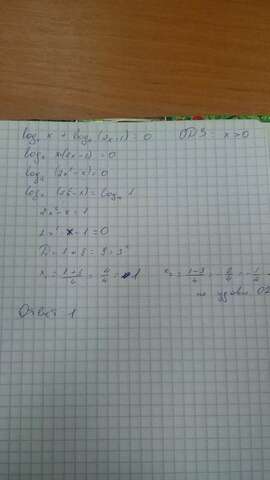 log₄ x + log₄ (2x-1) = 0 ОДЗ: x>0
log₄ x(2x-1) = 0
log₄ (2x²-x) = 0
log₄ (2x²-x) = log₄ 1
2x²-x=1
2x² x -1=0
D=1+8=9=3²
x₁ = 1+3/4 = 4/4 = 1 x₂ = 1-3/4 = -2/4 = -1/2
не удовл ОД
Ответ 1